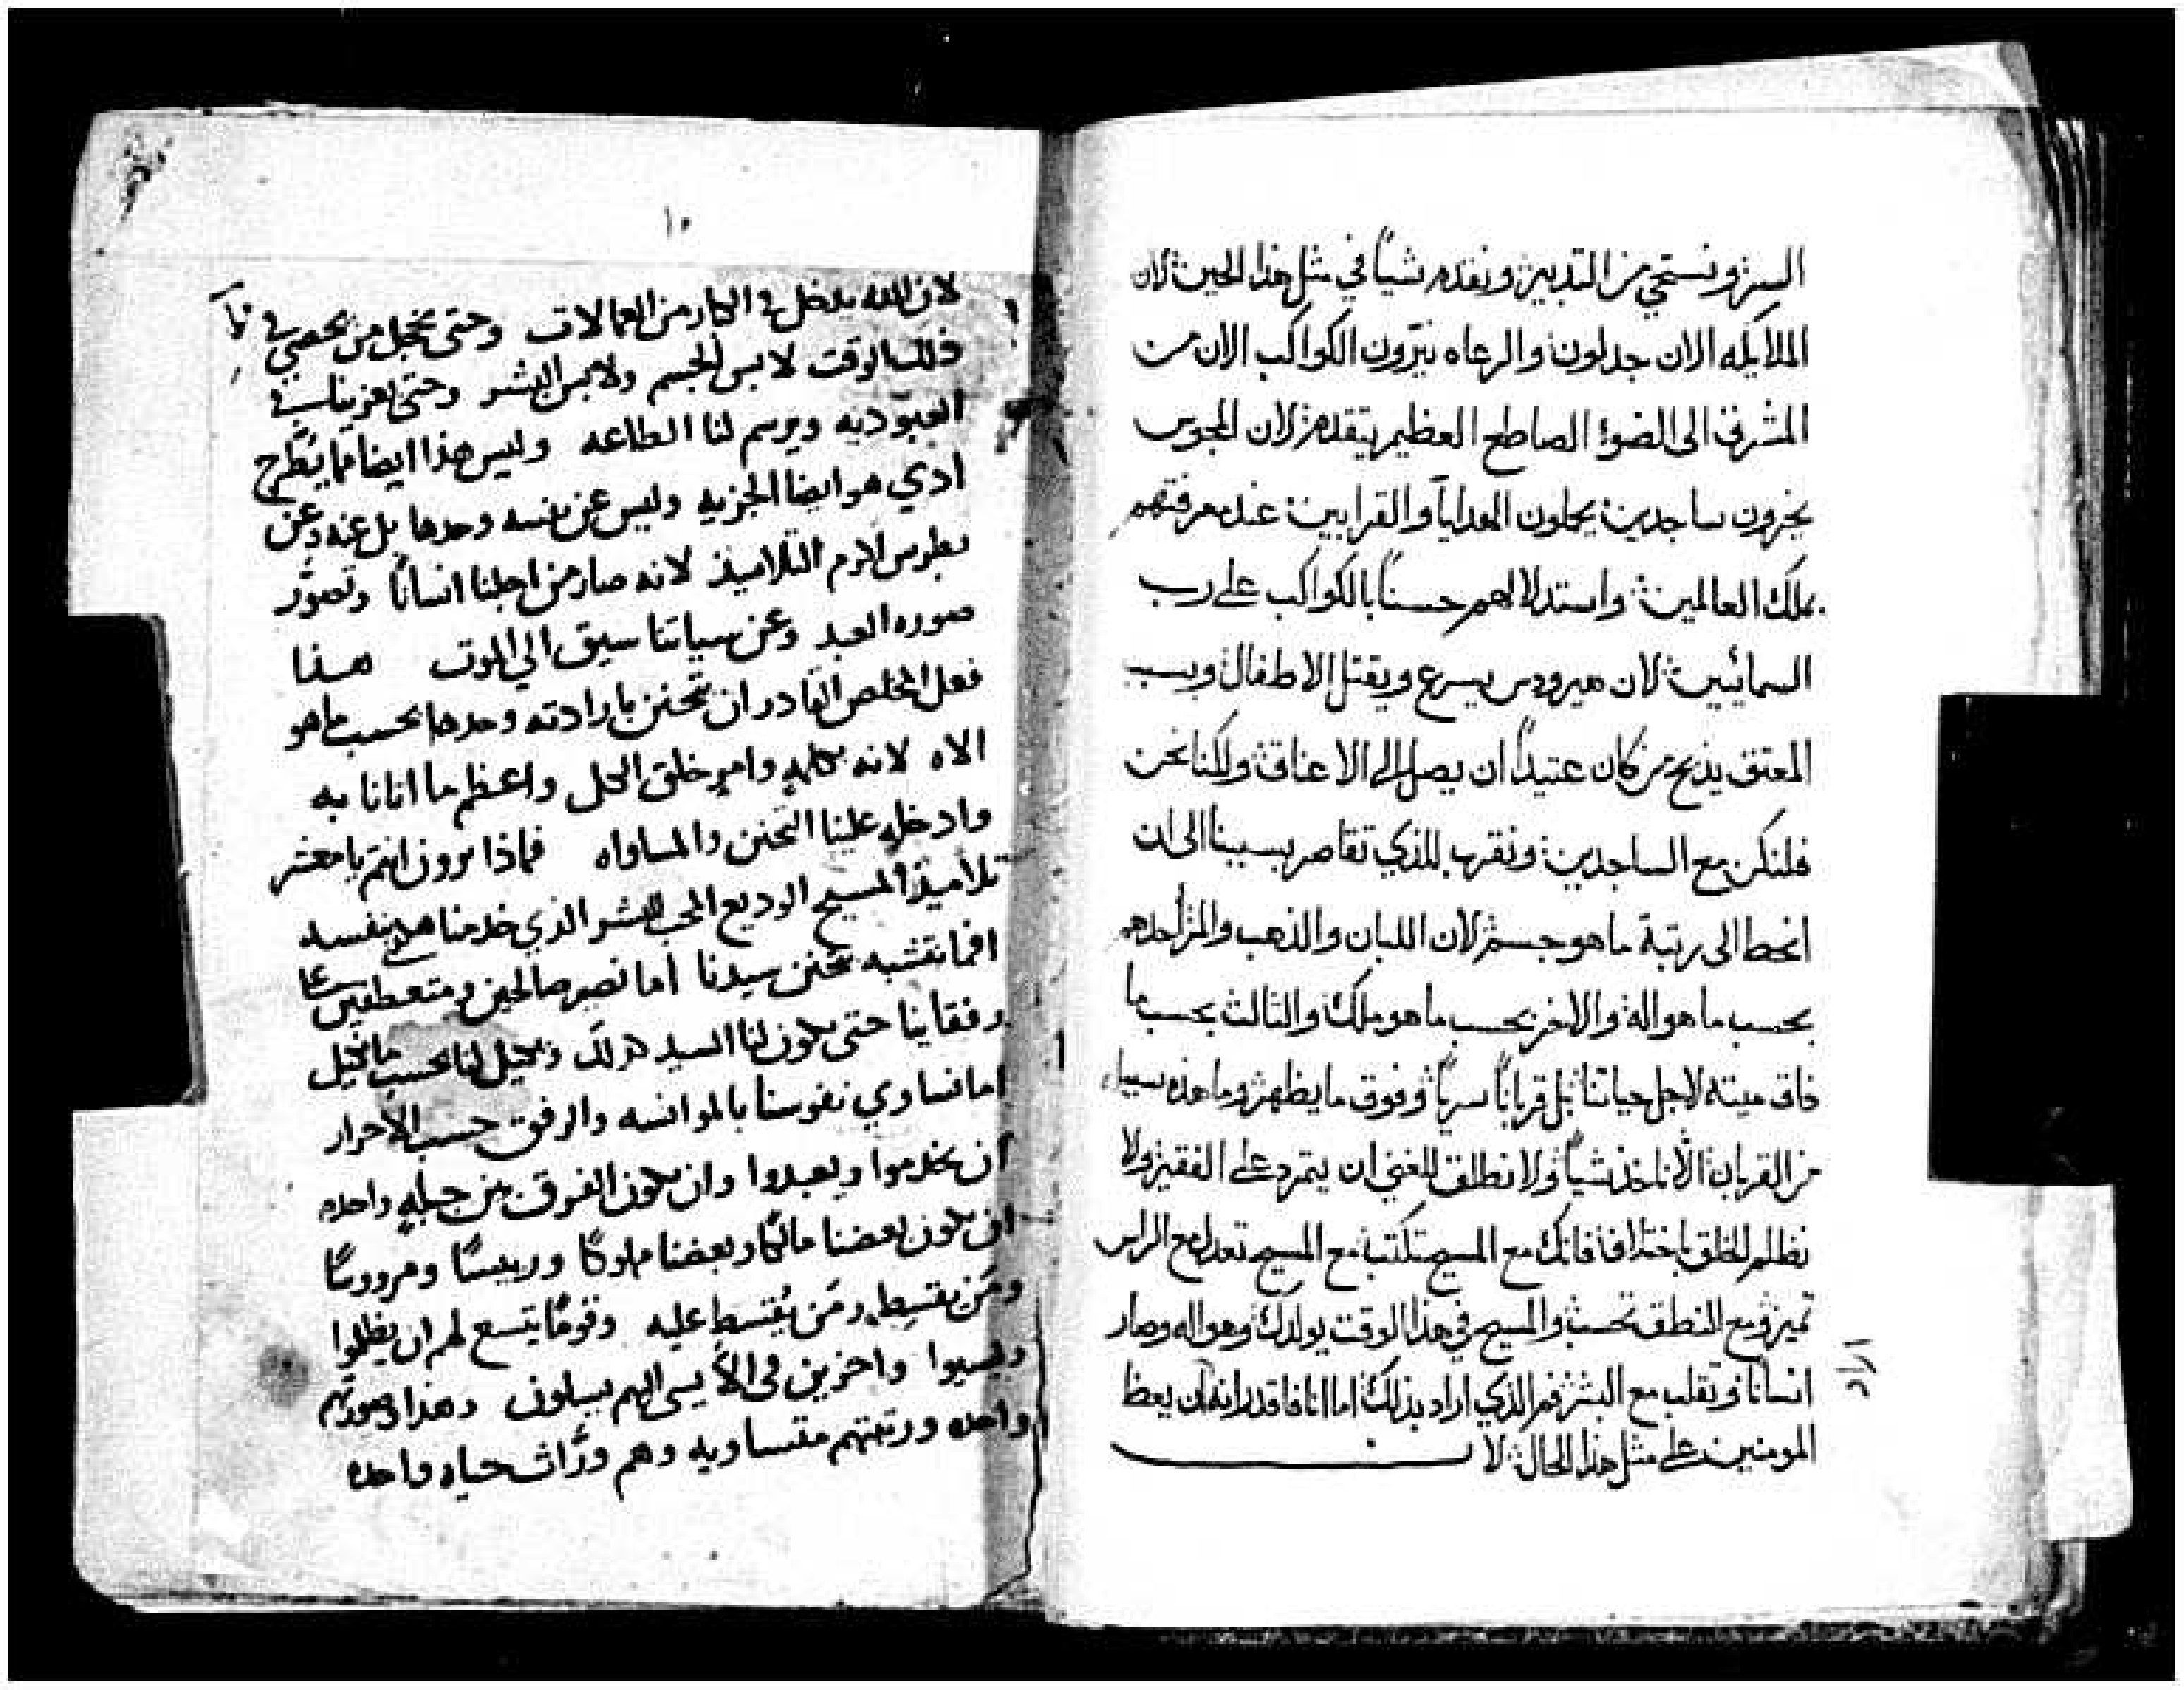 السر ونستحي من التدبير ونقدم شياً في مثل هذا الحين لان
الملايكه الان جدلون والرعاه نيّرون الكواكب الان من
المشرق الى الضوء الصاطع العظيم يتقدم لان المجوس
يخرون ساجدين يحملون الهدايا والقرابين عند معرفتهم
بملك العالمين واستدلالهم حسناً بالكواكب على رب
السمائيين لان هيرودس يسرع ويقتل الاطفال وبسبب
المعتق يذبح من كان عتيداً ان يصل الى الاعتاق ولكنا نحن
فلنكن مع الساجدين ونقرب للذي تقاصر بسببنا الى ان
انحط الى رتبة ما هو جسم لان اللبان والذهب والمر احدهم
بحسب ما هو اله والاخر بحسب ما هو ملك والثالث بحسب ما
ذاق ميتة لاجل حياتنا بل قرباناً سرياً وفوق ما يظهر وما هذه سبيله
من القربان الا ناخذ شياً ولا نطلق للغني ان يتمرد على الفقير ولا
نظلم الخلق باختلاف فانك مع المسيح تكتتب مع المسيح تعدل مع الراس
تميز ومع النطق تحسب والمسيح في هذا الوقت يولد لك وهو اله وصار
انساناً وتقلب مع البشر فمر الذي اراد بذلك اما انا فاقدر انه ان يعظ
المومنين على مثل هذا الحال لا
١٠
لان الله يدخل في الكبار من العمالات وحتى يخجل من يحصي في
ذلك الوقت لابس الجسم ولابس البشر وحتى يعزينا في
العبوديه ويرسم لنا الطاعه وليس هذا ايضا مما يُطرح
ادي هو ايضا الجزيه وليس عن نفسه وحدها بل عنه وعن
بطرس اكرم التلاميذ لانه صار من اجلنا انساناً وتصوَّر
صوره العبد وعن سياتنا سيق الي الموت هذا
فعل المخلص القادر ان تحنن بارادته وحدها بحسب ما هو
الاه لانه بكلمه وامر خلق الكل واعظم ما اتانا به
وادخله علينا التحنن والمساواه فماذا نروز انتم يا معشر
تلاميذ المسيح الوديع المحب للبشر الذي خدمنا هو بنفسه
افما نتشبه بتحنن سيدنا اما نصير صالحين ومتعطفين على
رفقاينا حتى يكون لنا السيد كذلك ويكيل لنا بحسب ما نكيل
اما نساوي نفوسنا بالموانسه والرفق حسب الاحرار
ان يخدموا ويعبدوا وان يكون الفرق من جبله واحده
ان يكون بعضنا مالكا وبعضنا مملوكاً ورييساً ومروسًا
ومَن يقسط ومَن يُقتسط عليه وقومًا يتسع لهم ان يظلموا
ويسبوا واخرين في الا يسي اليهم يسلون وهذا وصورتهم
واحده ورتبتهم متساويه وهم ورَّاث حياه واحده